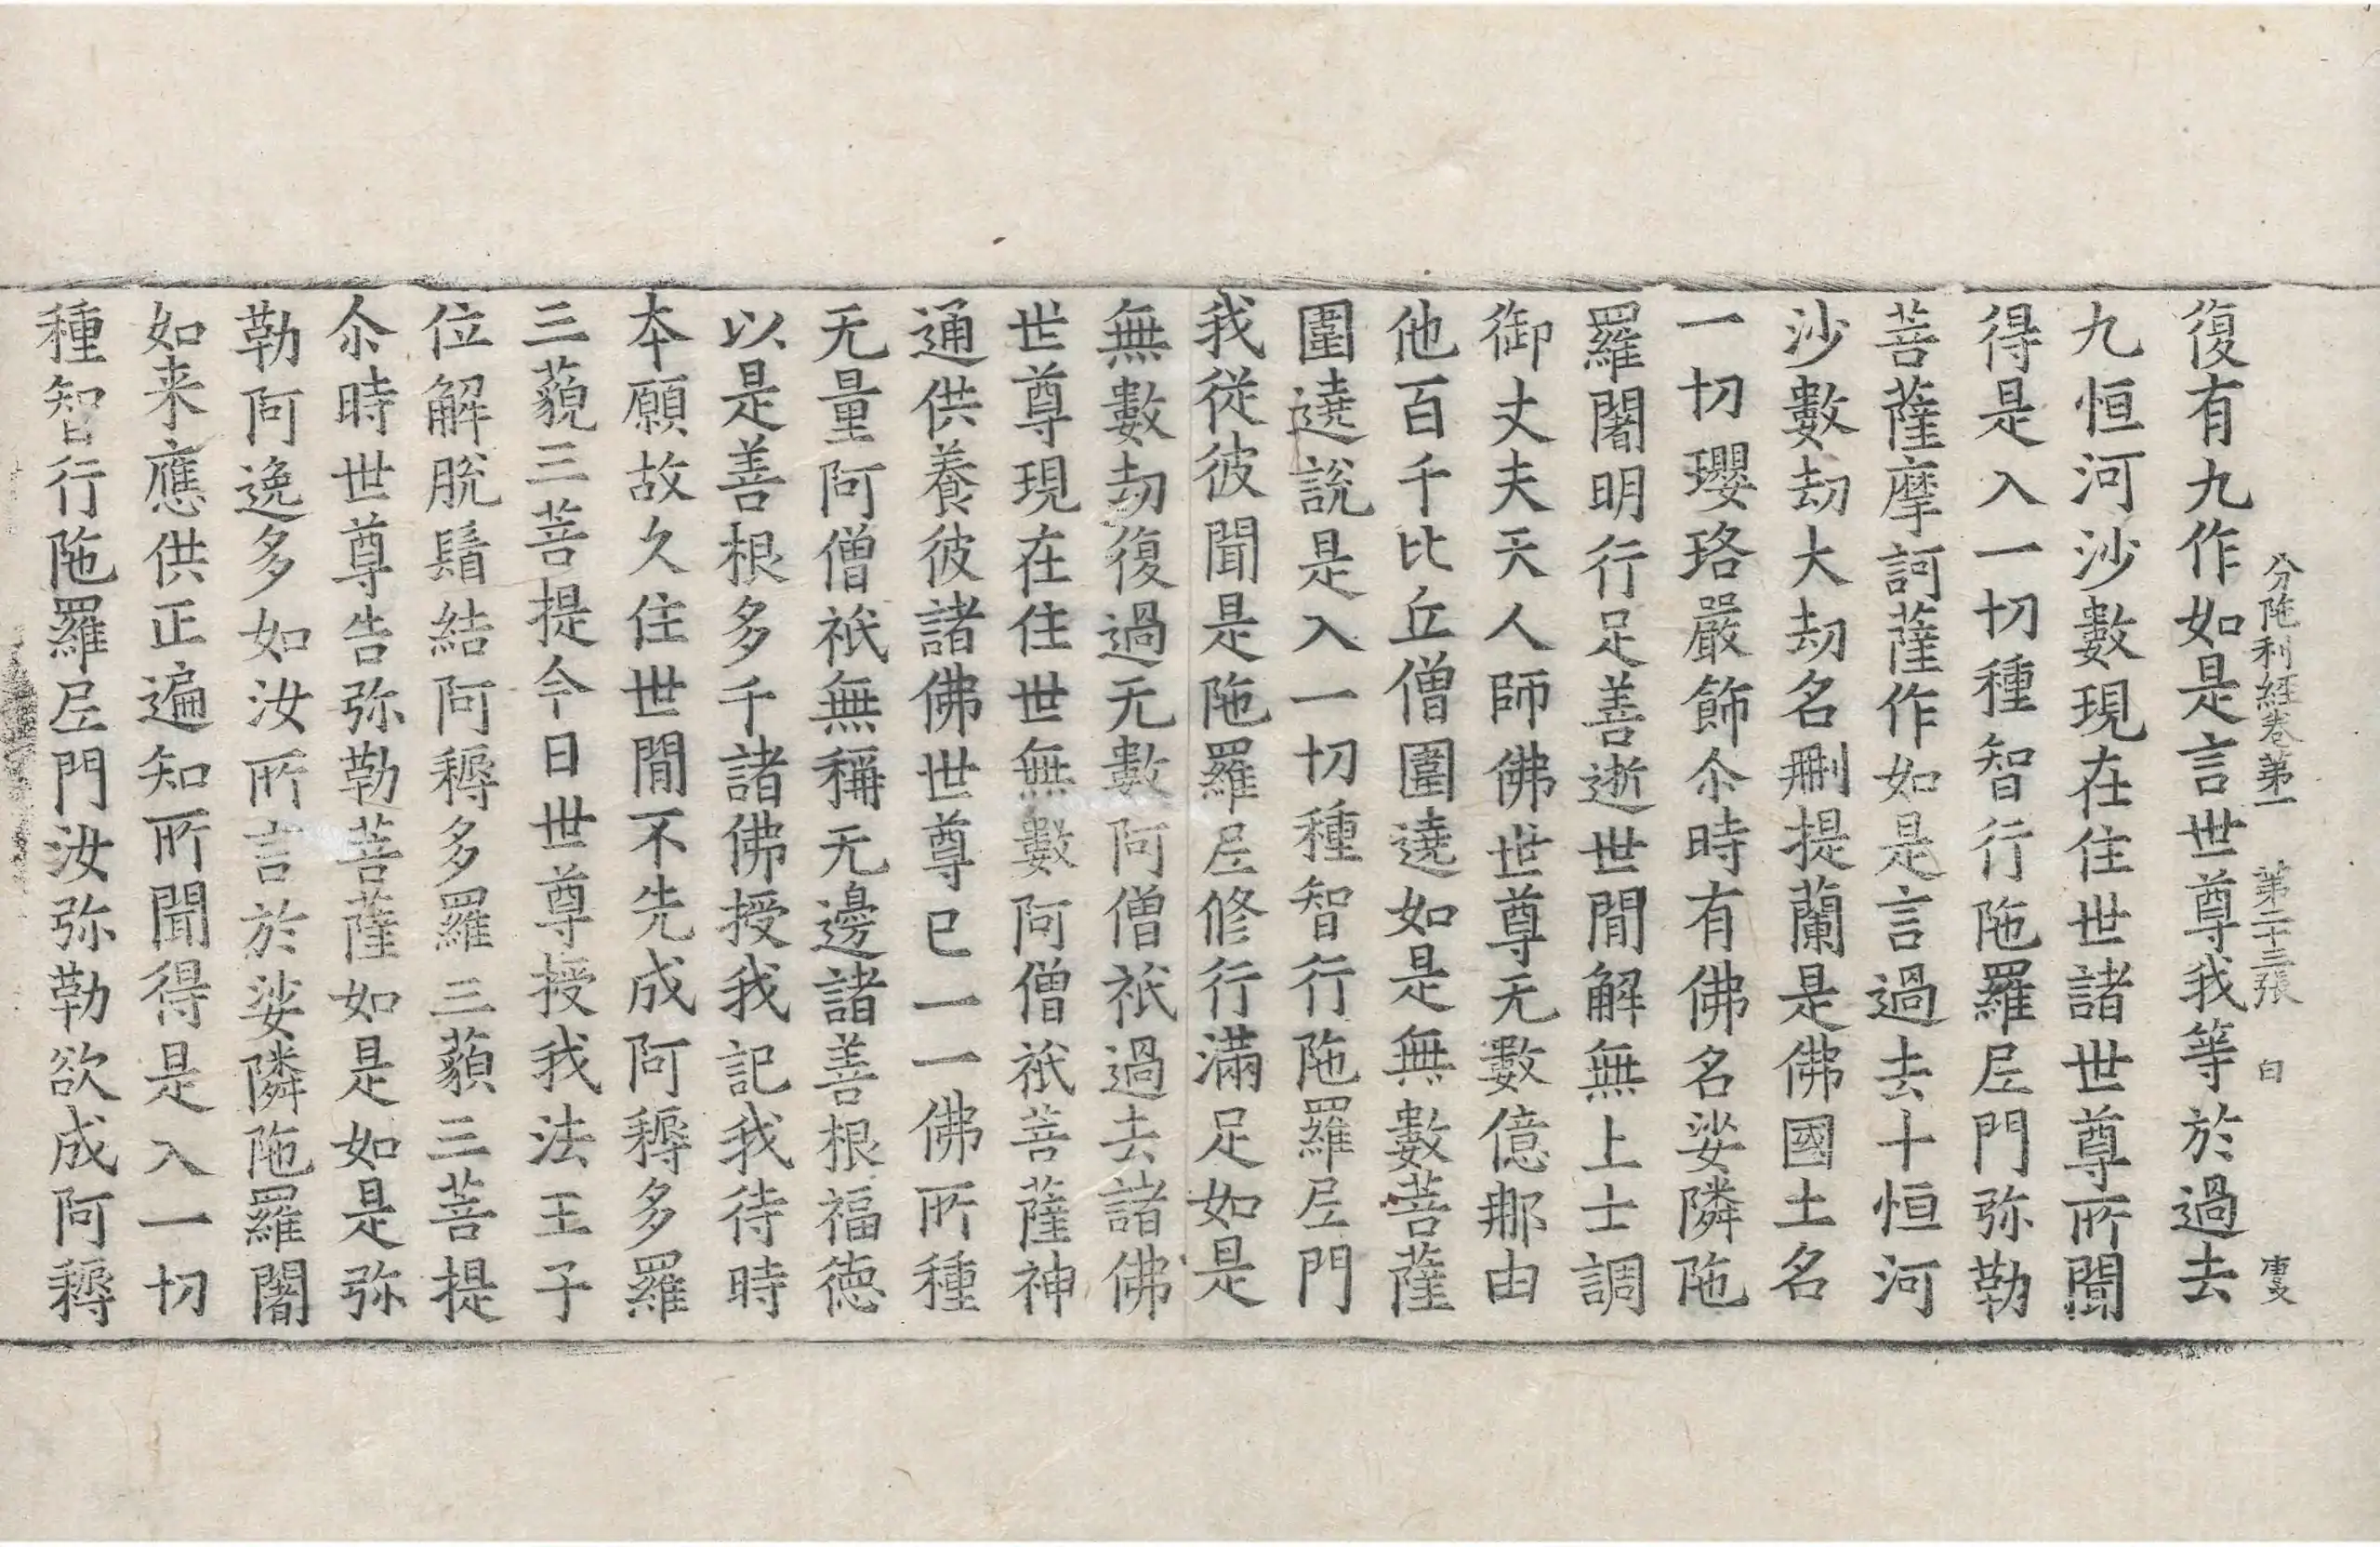 分陁利經卷第一　第二十三張　白　庚文
復有九作如是言世尊我等於過去
九恒河沙數現在住世諸世尊所聞
得是入一切種智行陁羅𡰱門弥勒
菩薩摩訶薩作如是言過去十恒河
沙數劫大劫名刪提蘭是佛國土名
一切瓔珞嚴飾尒時有佛名娑隣陁
羅闍明行足善逝世間解無上士調
御丈夫天人師佛世尊无數億那由
他百千比丘僧圍遶如是無數菩薩
圍遶說是入一切種智行陁羅𡰱門
我從彼聞是陁羅𡰱修行滿足如是
無數劫復過无數阿僧祇過去諸佛
世尊現在住世無數阿僧祇菩薩神
通供養彼諸佛世尊已一一佛所種
无量阿僧祇無稱无邊諸善根福德
以是善根多千諸佛授我記我待時
本願故久住世間不先成阿耨多羅
三藐三菩提今日世尊授我法王子
位解脫鬘結阿耨多羅三藐三菩提
尒時世尊告弥勒菩薩如是如是弥
勒阿逸多如汝所言於娑隣陁羅闍
如来應供正遍知所聞得是入一切
種智行陁羅𡰱門汝弥勒欲成阿耨